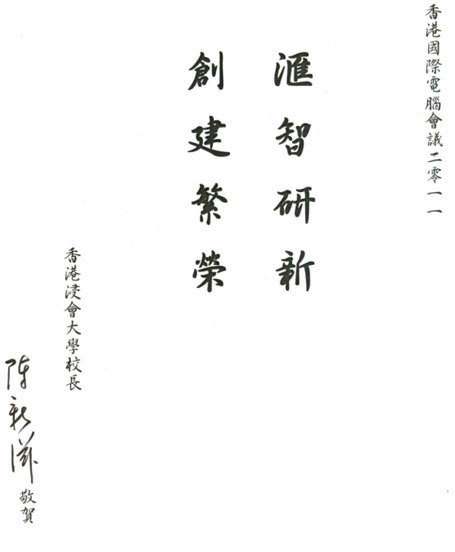 香港國際電腦會議二零一一
滙智研新
創建繁榮
香港浸會大學校長
陳新滋
敬賀